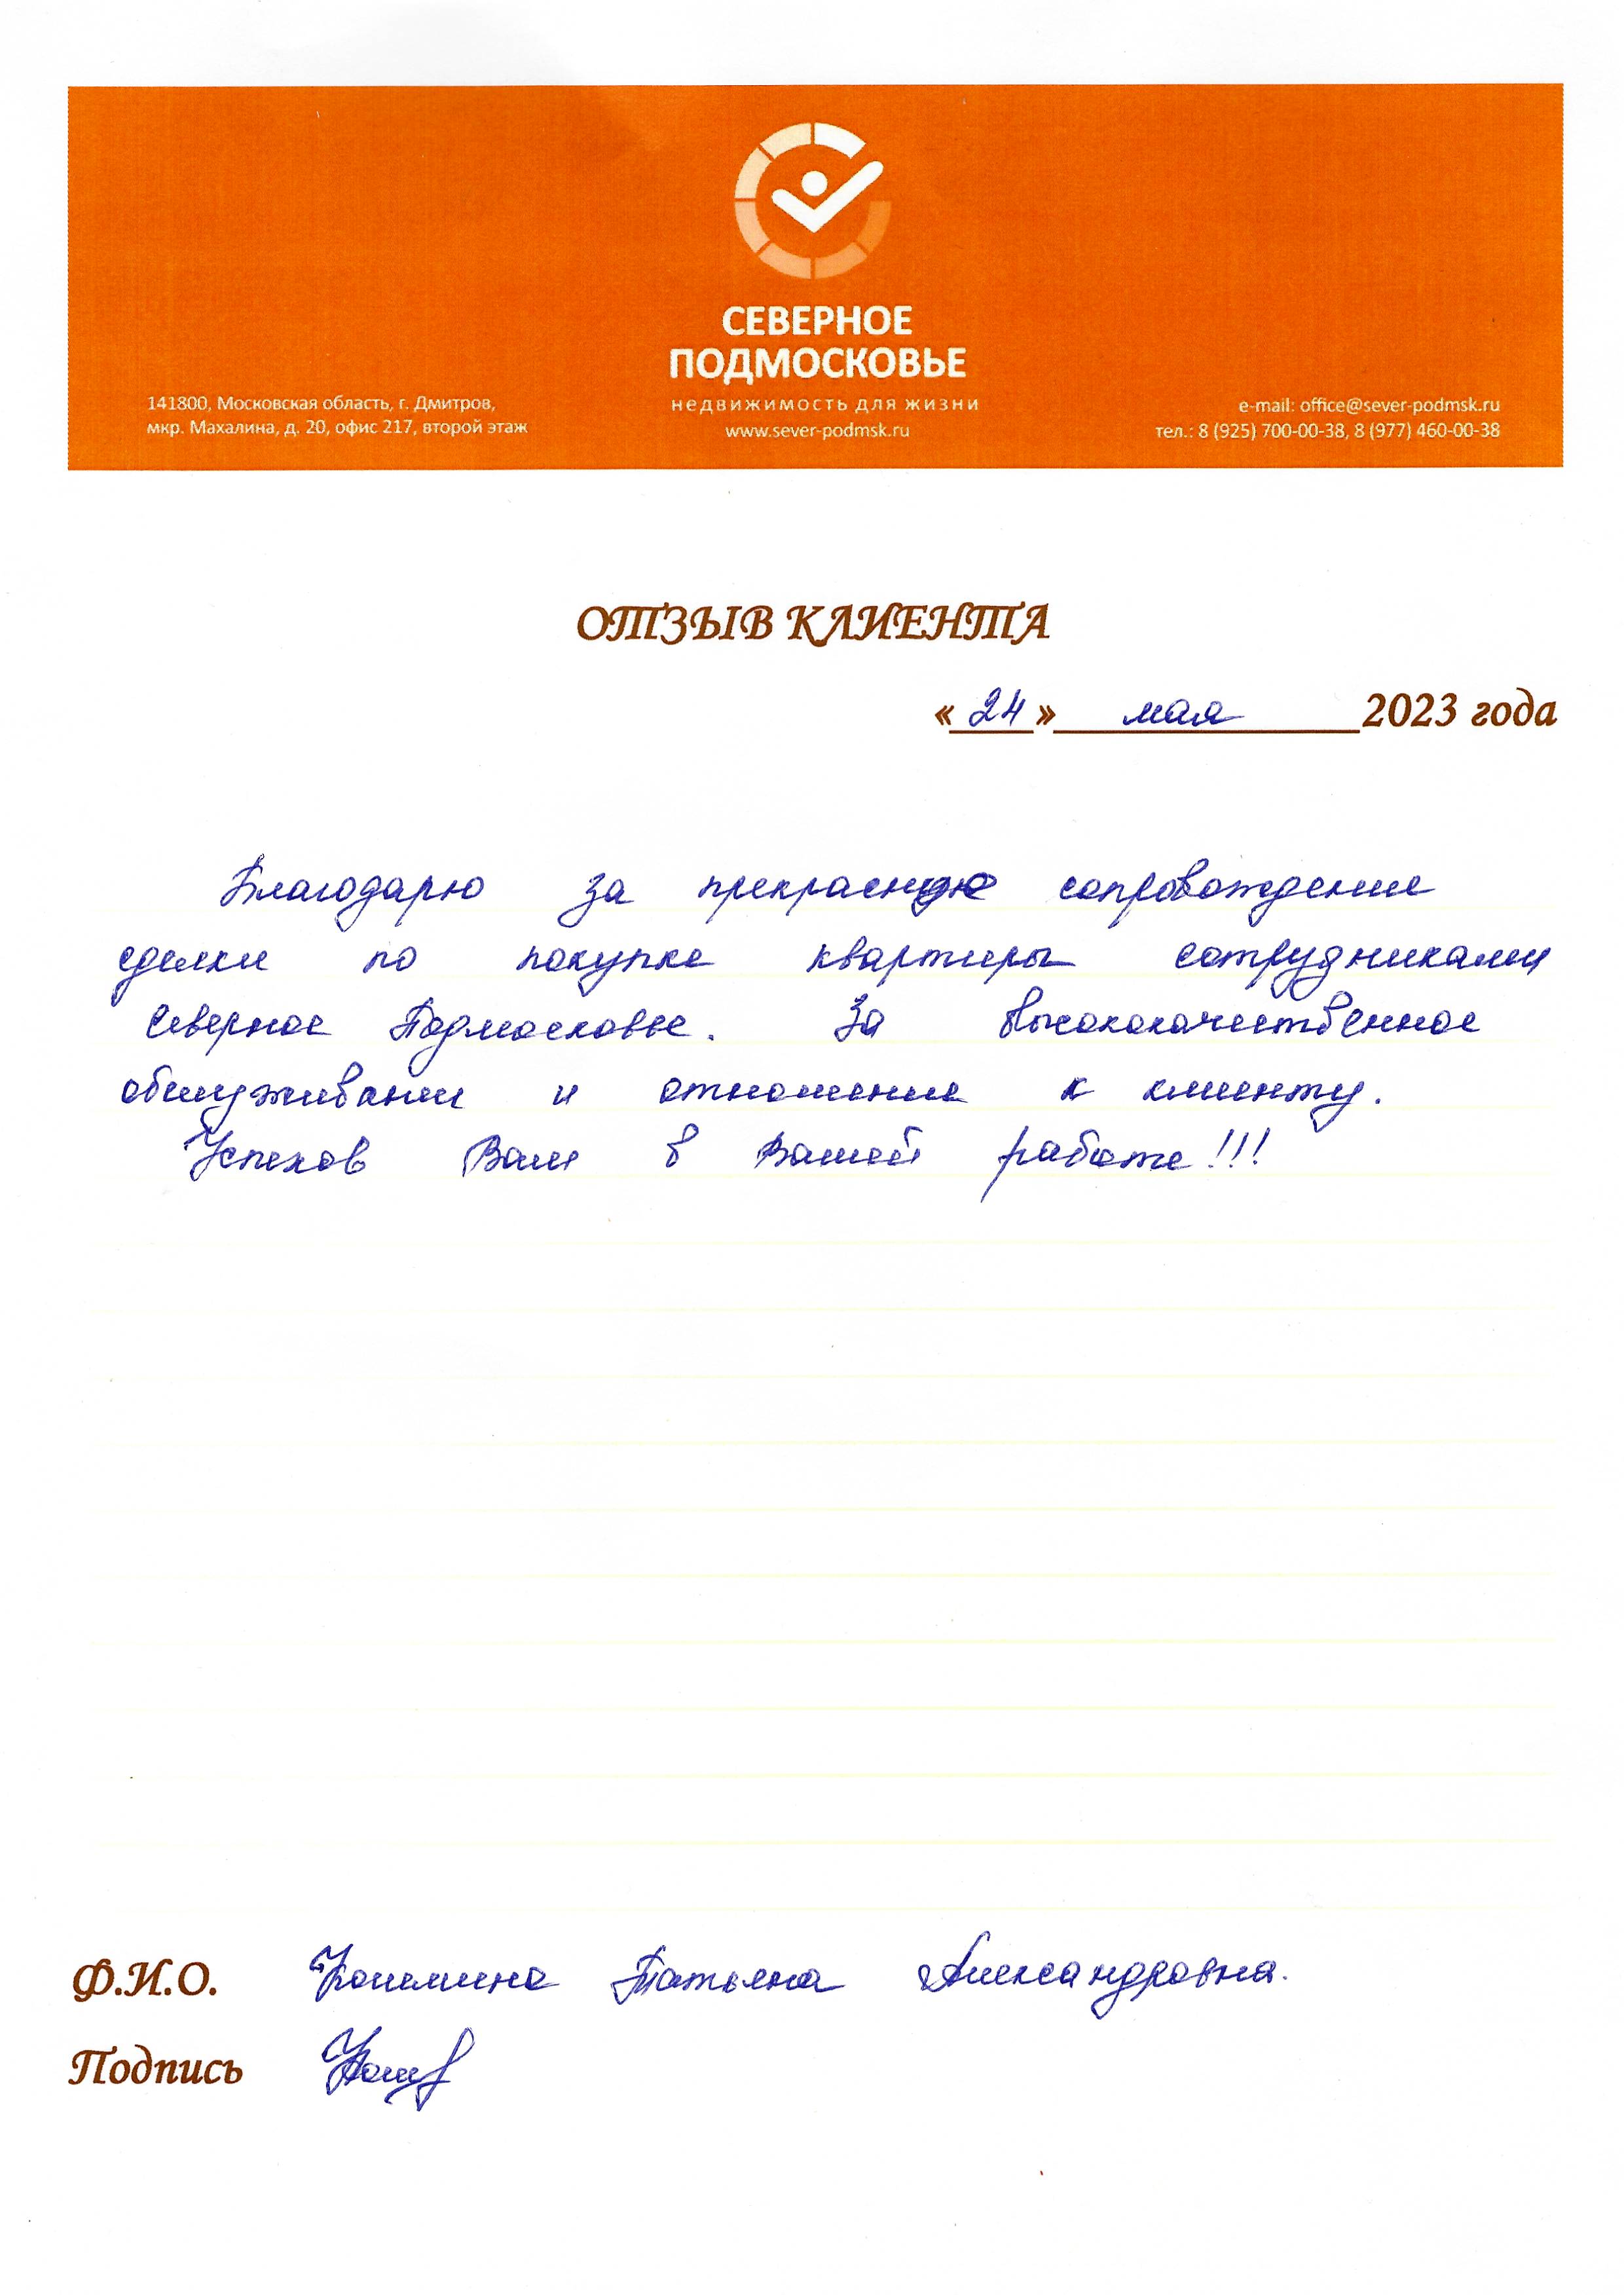 СЕВЕРНОЕ
ПОДМОСКОВЬЕ
недвижимость для жизни
www.sever-podmsk.ru
141800, Московская область, г. Дмитров,
мкр. Махалина, д. 20, офис 217, второй этаж
e-mail: office@sever-podmsk.ru
тел.: 8 (925) 700-00-38, 8 (977) 460-00-38
ОТЗЫВ КЛИЕНТА
«24» мая 2023 года
Благодарю за сопровождение
сделки по покупке квартиры сотрудниками
Северное Подмосковье. За высококачественное
обслуживание и отношение к клиенту.
Успехов Вам в Вашей работе!!!
Ф.И.О. Татьяна Александровна.
Подпись